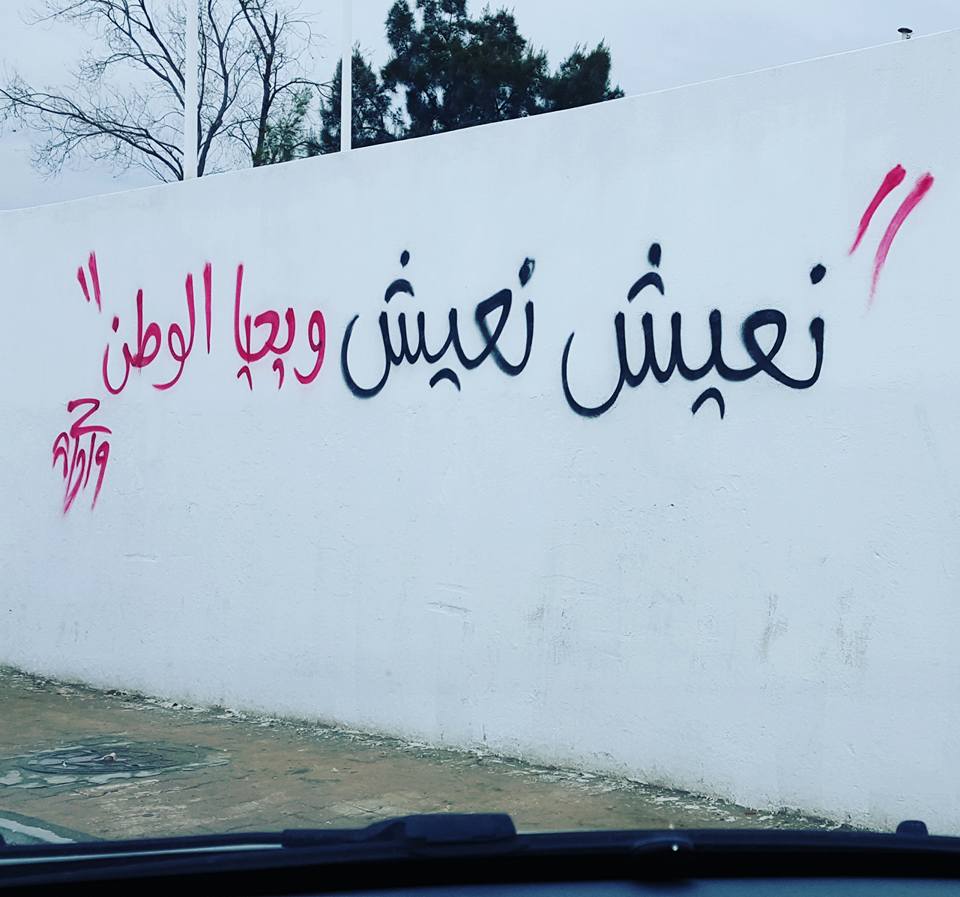 "نعيش نعيش ويحيا الوطن"